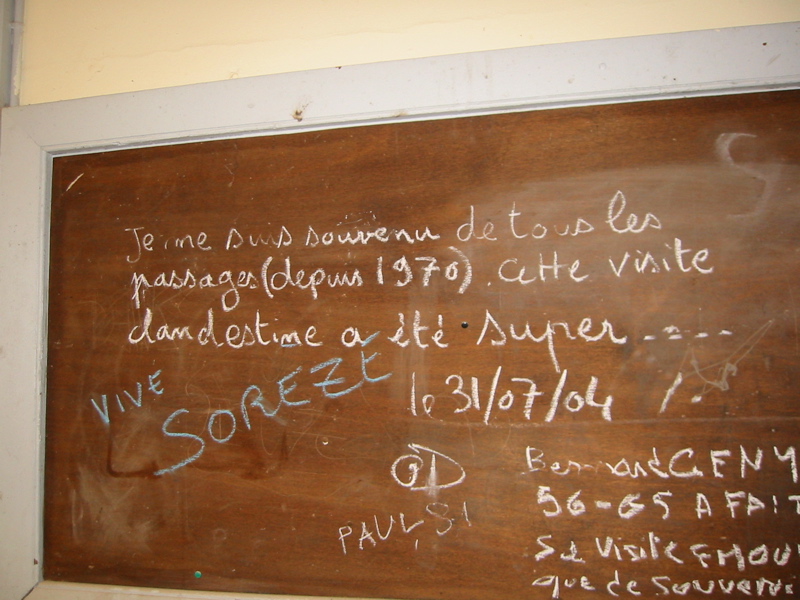 Je me suis souvenu de tous les
passages (depuis 1970). Cette visite
clandestine a été super ....
le 31/07/04
VIVE
SORÈZE
PAUL, 81
Bernard GENY
56-65 A FAIT
Sa Visite EMOU
que de souvenir